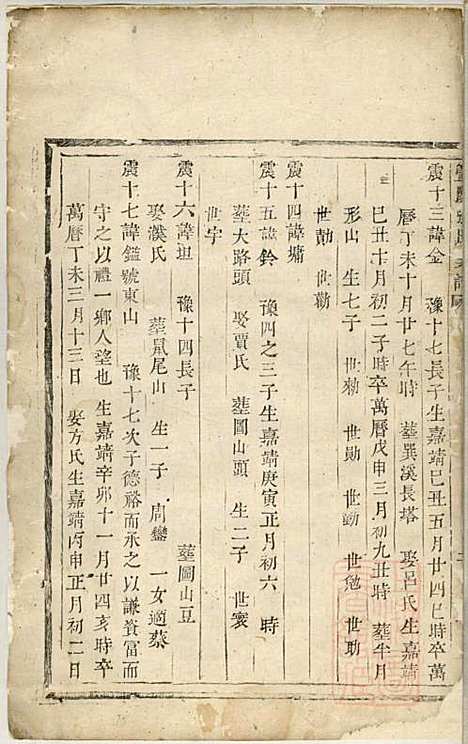 震十三諱金　豫十七長子生嘉靖己丑五月廿四巳時卒萬
曆丁未十月廿七午時　塟巽溪長塔　娶呂氏生嘉靖
己丑十月初二子時卒萬曆戊申三月初九丑時　塟半月
形山　生七子　世勑　世勛　世勤　世勉　世助
世勣　世勷
震十四諱墉
震十五諱鈴　豫四之三子生嘉靖庚寅正月初六　時
塟大路頭　娶賈氏　塟圖山頭　生二子　世寰
世宇
震十六諱坦　豫十四長子　塟圖山豆
娶濮氏　塟鼠尾山　生一子　周鑾　一女適蔡
震十七諱鎰號東山　豫十七次子德裕而承之以謙貲富而
守之以禮一鄉人望也　生嘉靖辛卯十一月廿四亥時卒
萬曆丁未三月十三日　娶方氏生嘉靖丙申正月初二日